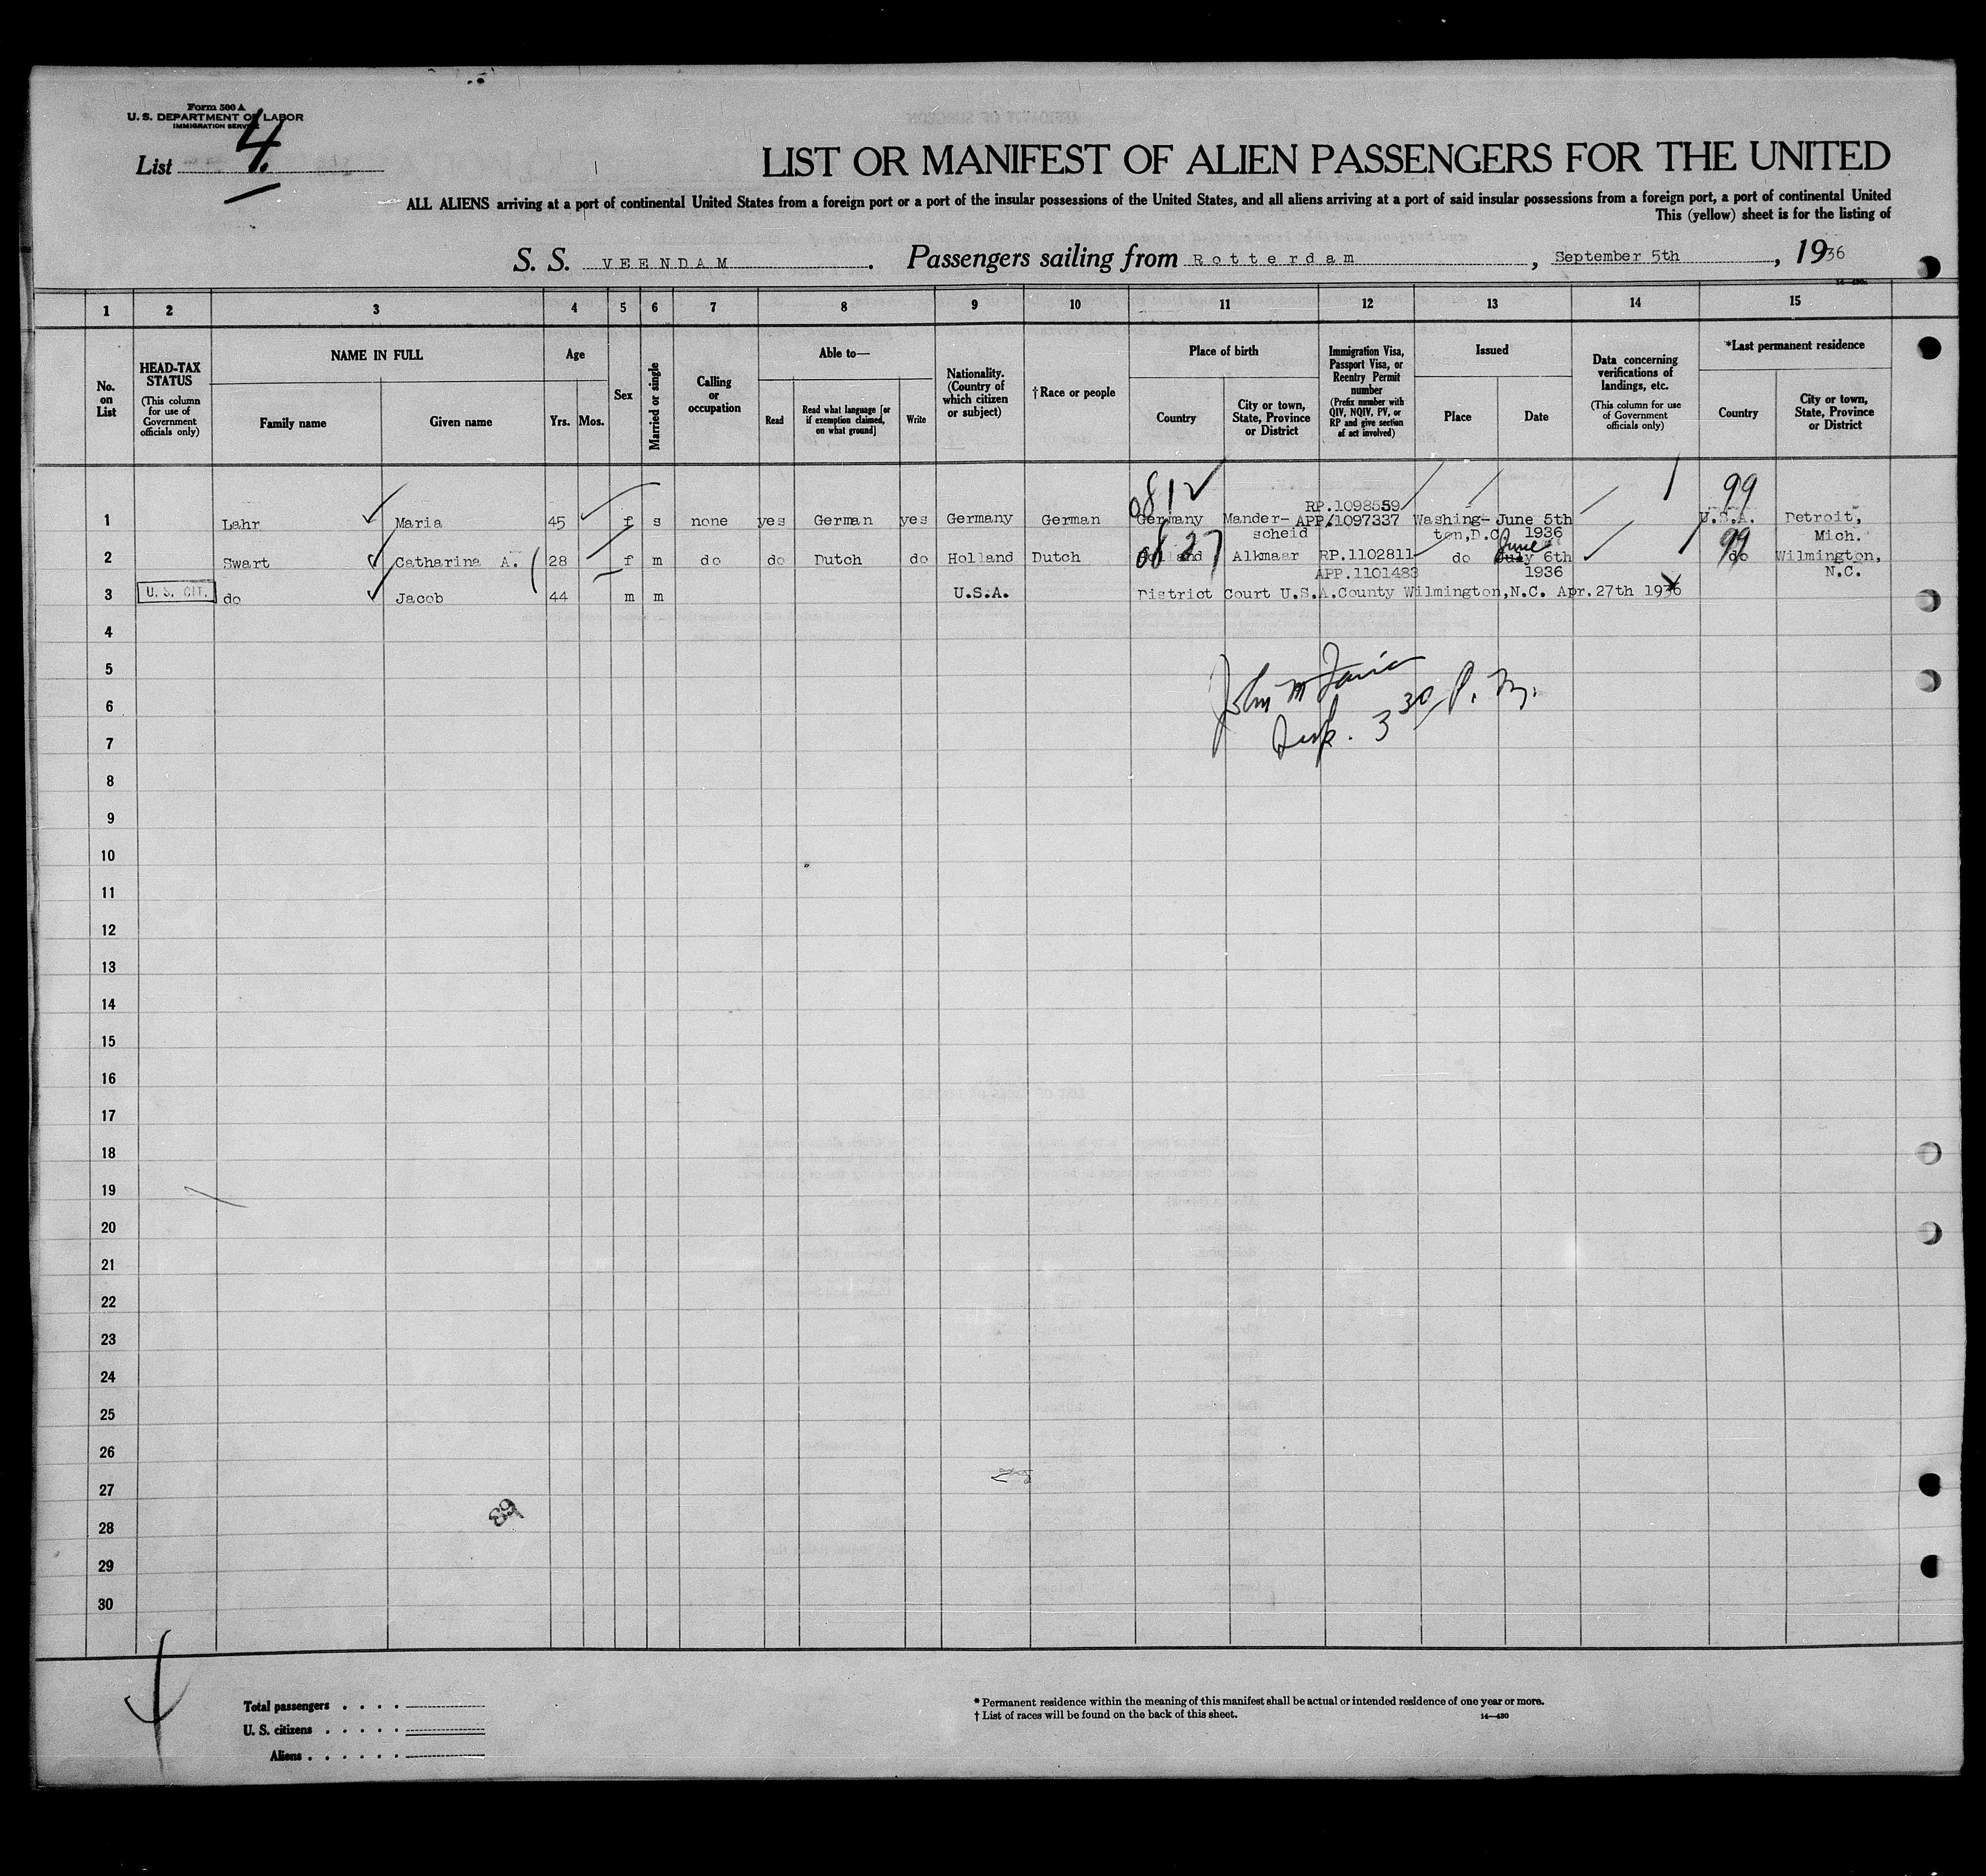 Form 500 A
U. S. DEPARTMENT OF LABOR
IMMIGRATION SERVICE
List 4.
LIST OR MANIFEST OF ALIEN PASSENGERS FOR THE UNITED
ALL ALIENS arriving at a port of continental United States from a foreign port or a port of the insular possessions of the United States, and all aliens arriving at a port of said insular possessions from a foreign port, a port of continental United
This (yellow) sheet is for the listing of
S. S. VEENDAM. Passengers sailing from Rotterdam, September 5th, 1936
1 2 3 4 5 6 7 8 9 10 11 12 13 14 15
No. on List
HEAD-TAX STATUS
(This column for use of Government officials only)
NAME IN FULL
Family name Given name
Age
Yrs. Mos.
Sex
Married or single
Calling or occupation
Able to—
Read Read what language [or if exemption claimed, on what ground] Write
Nationality. (Country of which citizen or subject)
†Race or people
Place of birth
Country City or town, State, Province or District
Immigration Visa, Passport Visa, or Reentry Permit number
(Prefix number with QIV, NQIV, PV, or RP and give section of act involved)
Issued
Place Date
Data concerning verifications of landings, etc.
(This column for use of Government officials only)
*Last permanent residence
Country City or town, State, Province or District
0812 99
RP.1098559
1 Lahr Maria 45 f s none yes German yes Germany German Germany Mander- APP/1097337 Washing- June 5th U.S.A. Detroit,
scheid ton,D.C. 1936 Mich.
0827 June 99
2 Swart Catharina A. 28 f m do do Dutch do Holland Dutch Holland Alkmaar RP.1102811 do July 6th do Wilmington,
APP.1101483 1936 N.C.
3 U. S. CIT. do Jacob 44 m m U.S.A. District Court U.S.A.County Wilmington,N.C. Apr.27th 1936
4
5
John M
6
3 30 P. M.
7
8
9
10
11
12
13
14
15
16
17
18
19
20
21
22
23
24
25
26
27
28
29
30
Total passengers . . . .
U. S. citizens . . . . .
Aliens . . . . . .
* Permanent residence within the meaning of this manifest shall be actual or intended residence of one year or more.
† List of races will be found on the back of this sheet. 14—430